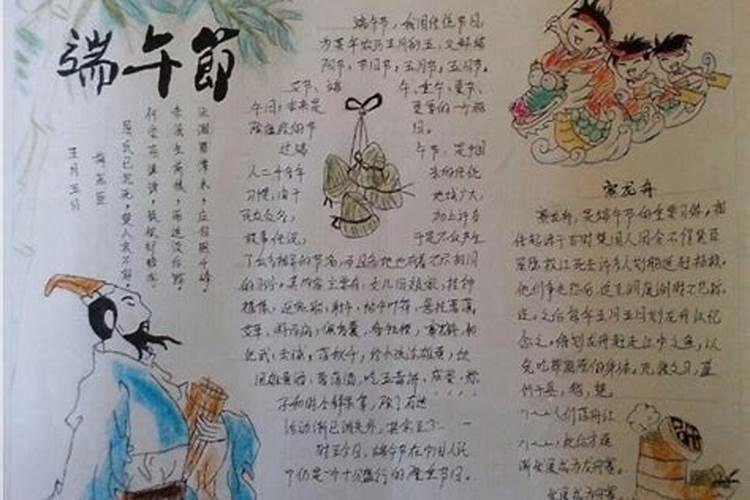 端午節
五月五日
梅尧臣
屈氏已沉死，楚人哀不容。
何尝奈谗谤，徒欲却蛟龙。
未泯生前恨，而追没后踪。
沅湘碧潭水，应自照千峰。
端午节，我国传统节日，
为每年农历五月初五，又称端
阳节，午日节，五月节，五日节，
艾节，端
午，重午，夏节，
午日，本来是
夏季的一个驱
除瘟疫的节
日。
过端
午节，是中国
人二千多年
来的传统
习惯，由于
地域广大，
民族众多，
加上许多
故事传说，
于是不仅产生
了众多相异的节名，而且各地也有着不尽相同
的习俗。其内容主要有：女儿回娘家，挂钟
馗像，迎鬼船，躲午，帖午叶符，悬挂菖蒲
艾草，游百病，佩香囊，备牲醴，赛龙舟，
比武，击球，荡秋千，给小孩涂雄黄，饮
用雄黄酒，菖蒲酒，吃五毒饼，咸蛋，粽
子和时令鲜果等，除了
活动渐已消失外，其余
时至今日，端午节在中国人民
中仍是一个十分盛行的隆重节日。
赛龙舟
赛龙舟，是端午节的重要习俗，相
传起源于古时楚国人因舍不得贤臣
屈原投江死去许多人划船追赶拯救。
他们争先恐后，追至洞庭湖时不见踪
迹，之后每年五月五日划龙舟以纪
念之。借划龙舟驱赶江中之鱼，以
免吃掉屈原的身体。竞渡之习，盛
行于吴，越，楚。